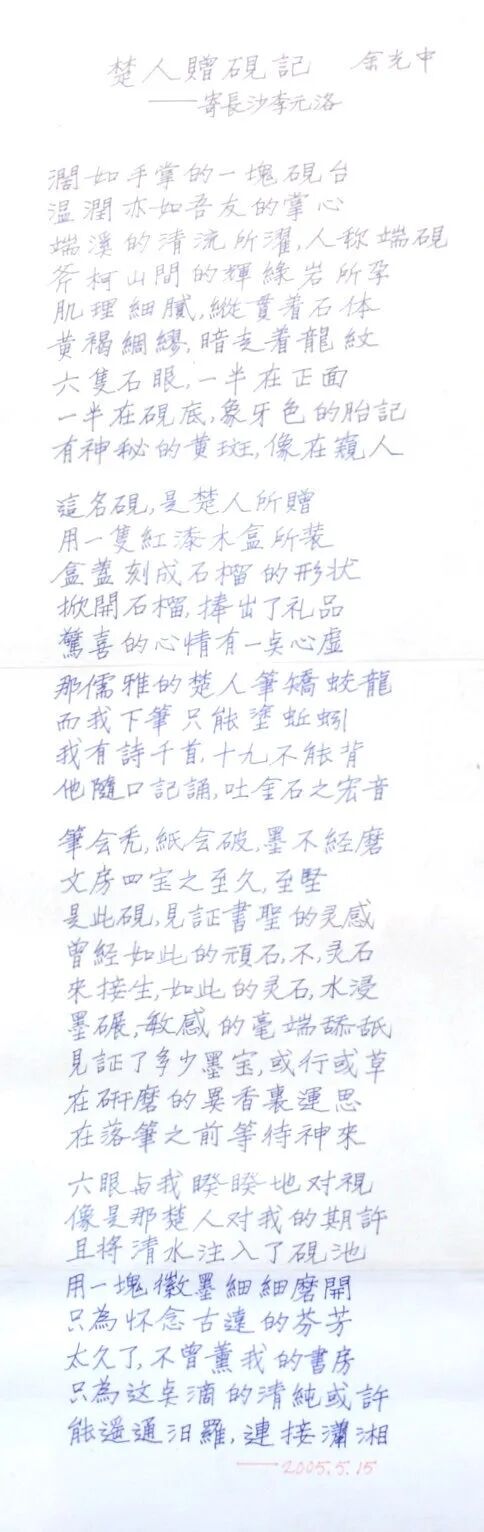 楚人贈硯記　余光中
——寄長沙李元洛
濶如手掌的一塊硯台
温潤亦如吾友的掌心
端溪的清流所濯,人称端硯
斧柯山間的輝綠岩所孕
肌理細膩,縱貫着石体
黄褐綢繆,暗走着龍紋
六隻石眼,一半在正面
一半在硯底,象牙色的胎記
有神秘的黄斑,像在窺人
這名硯,是楚人所贈
用一隻紅漆木盒所装
盒蓋刻成石榴的形状
掀開石榴,捧出了礼品
驚喜的心情有一点心虛
那儒雅的楚人筆矯蛟龍
而我下筆只能塗蚯蚓
我有詩千首,十九不能背
他隨口記誦,吐金石之宏音
筆会秃,紙会破,墨不經磨
文房四宝之至久,至堅
是此硯,見証書聖的灵感
曾經如此的頑石,不,灵石
來接生,如此的灵石,水浸
墨碾,敏感的毫端舔舐
見証了多少墨宝,或行或草
在研磨的異香裏運思
在落筆之前等待神來
六眼与我睽睽地对視
像是那楚人对我的期許
且将清水注入了硯池
用一塊徽墨細細磨開
只為怀念古遠的芬芳
太久了,不曾薰我的書房
只為这点滴的清純或許
能遥通汨羅,連接瀟湘
——2005.5.15